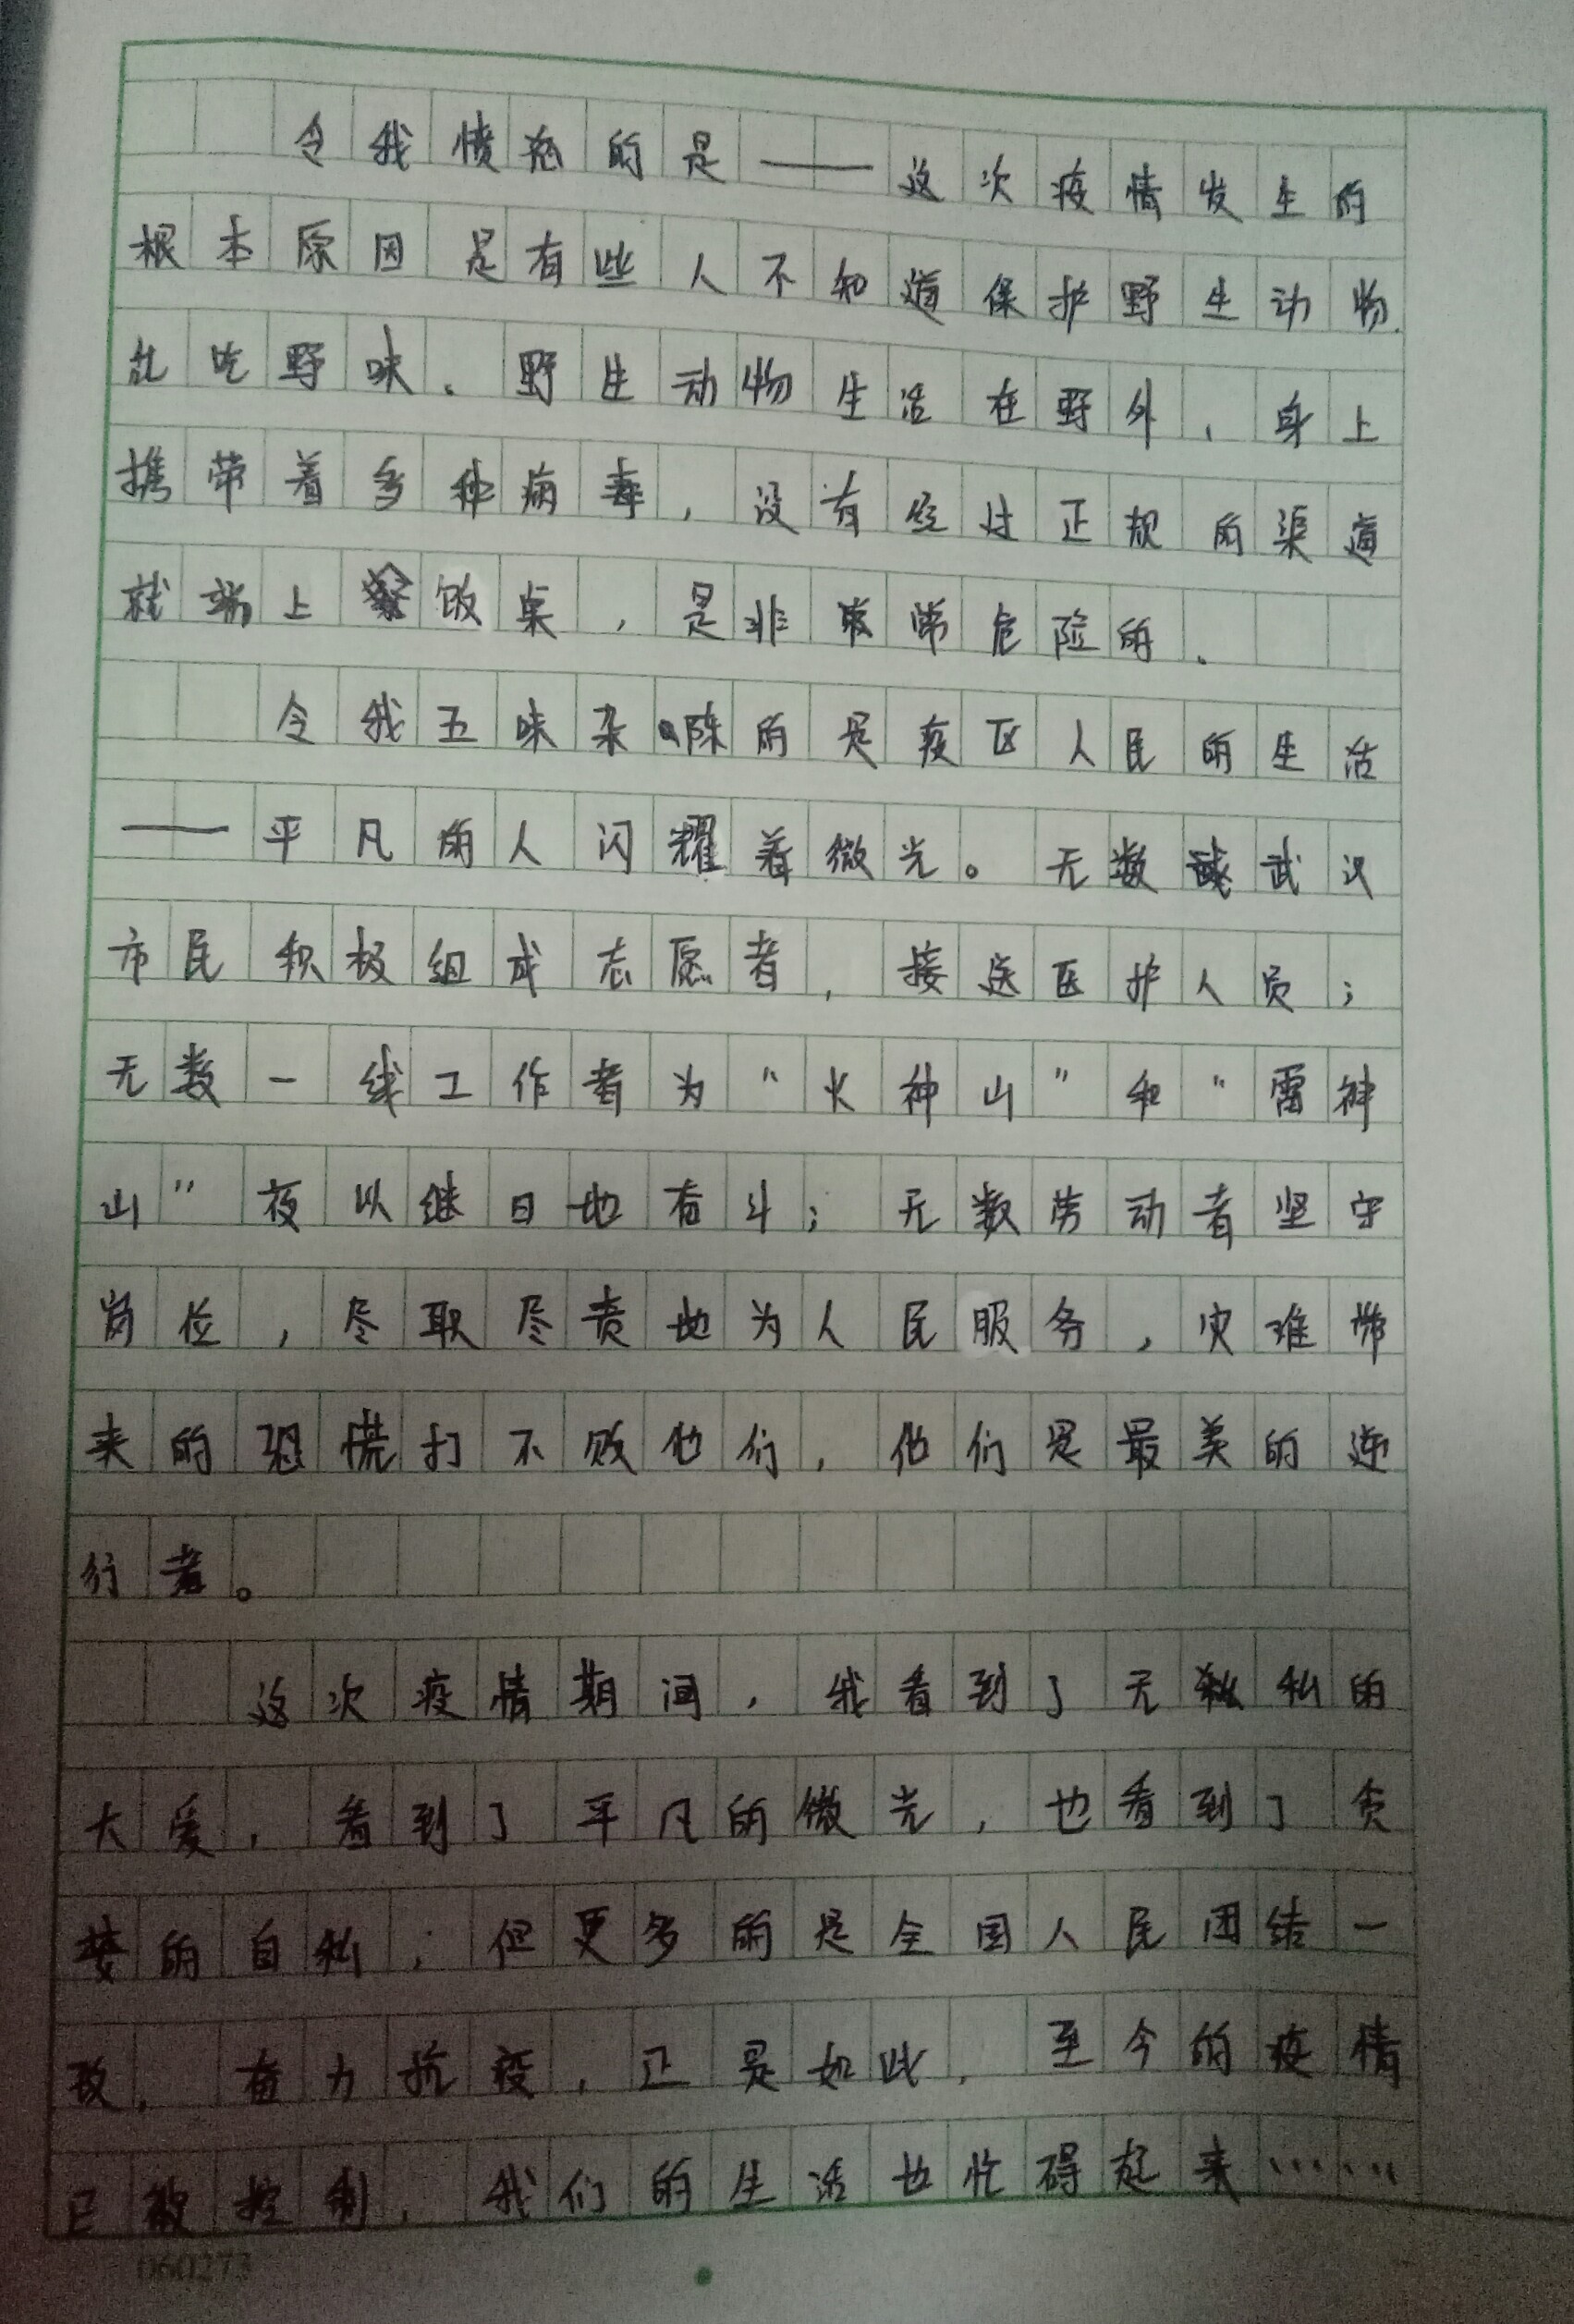 令我愤怒的是——这次疫情发生的
根本原因是有些人不知道保护野生动物,
乱吃野味。野生动物生活在野外,身上
携带着多种病毒,没有经过正规的渠道
就端上饭桌,是非常危险的。
令我五味杂陈的是疫区人民的生活
——平凡的人闪耀着微光。无数武汉
市民积极组成志愿者,接送医护人员;
无数一线工作者为“火神山”和“雷神
山”夜以继日地奋斗;无数劳动者坚守
岗位,尽职尽责地为人民服务,灾难带
来的恐慌打不败他们,他们是最美的逆
行者。
这次疫情期间,我看到了无私的
大爱,看到了平凡的微光,也看到了贪
婪的自私;但更多的是全国人民团结一
致,奋力抗疫,正是如此,至今的疫情
已被控制,我们的生活也忙碍起来……
060273